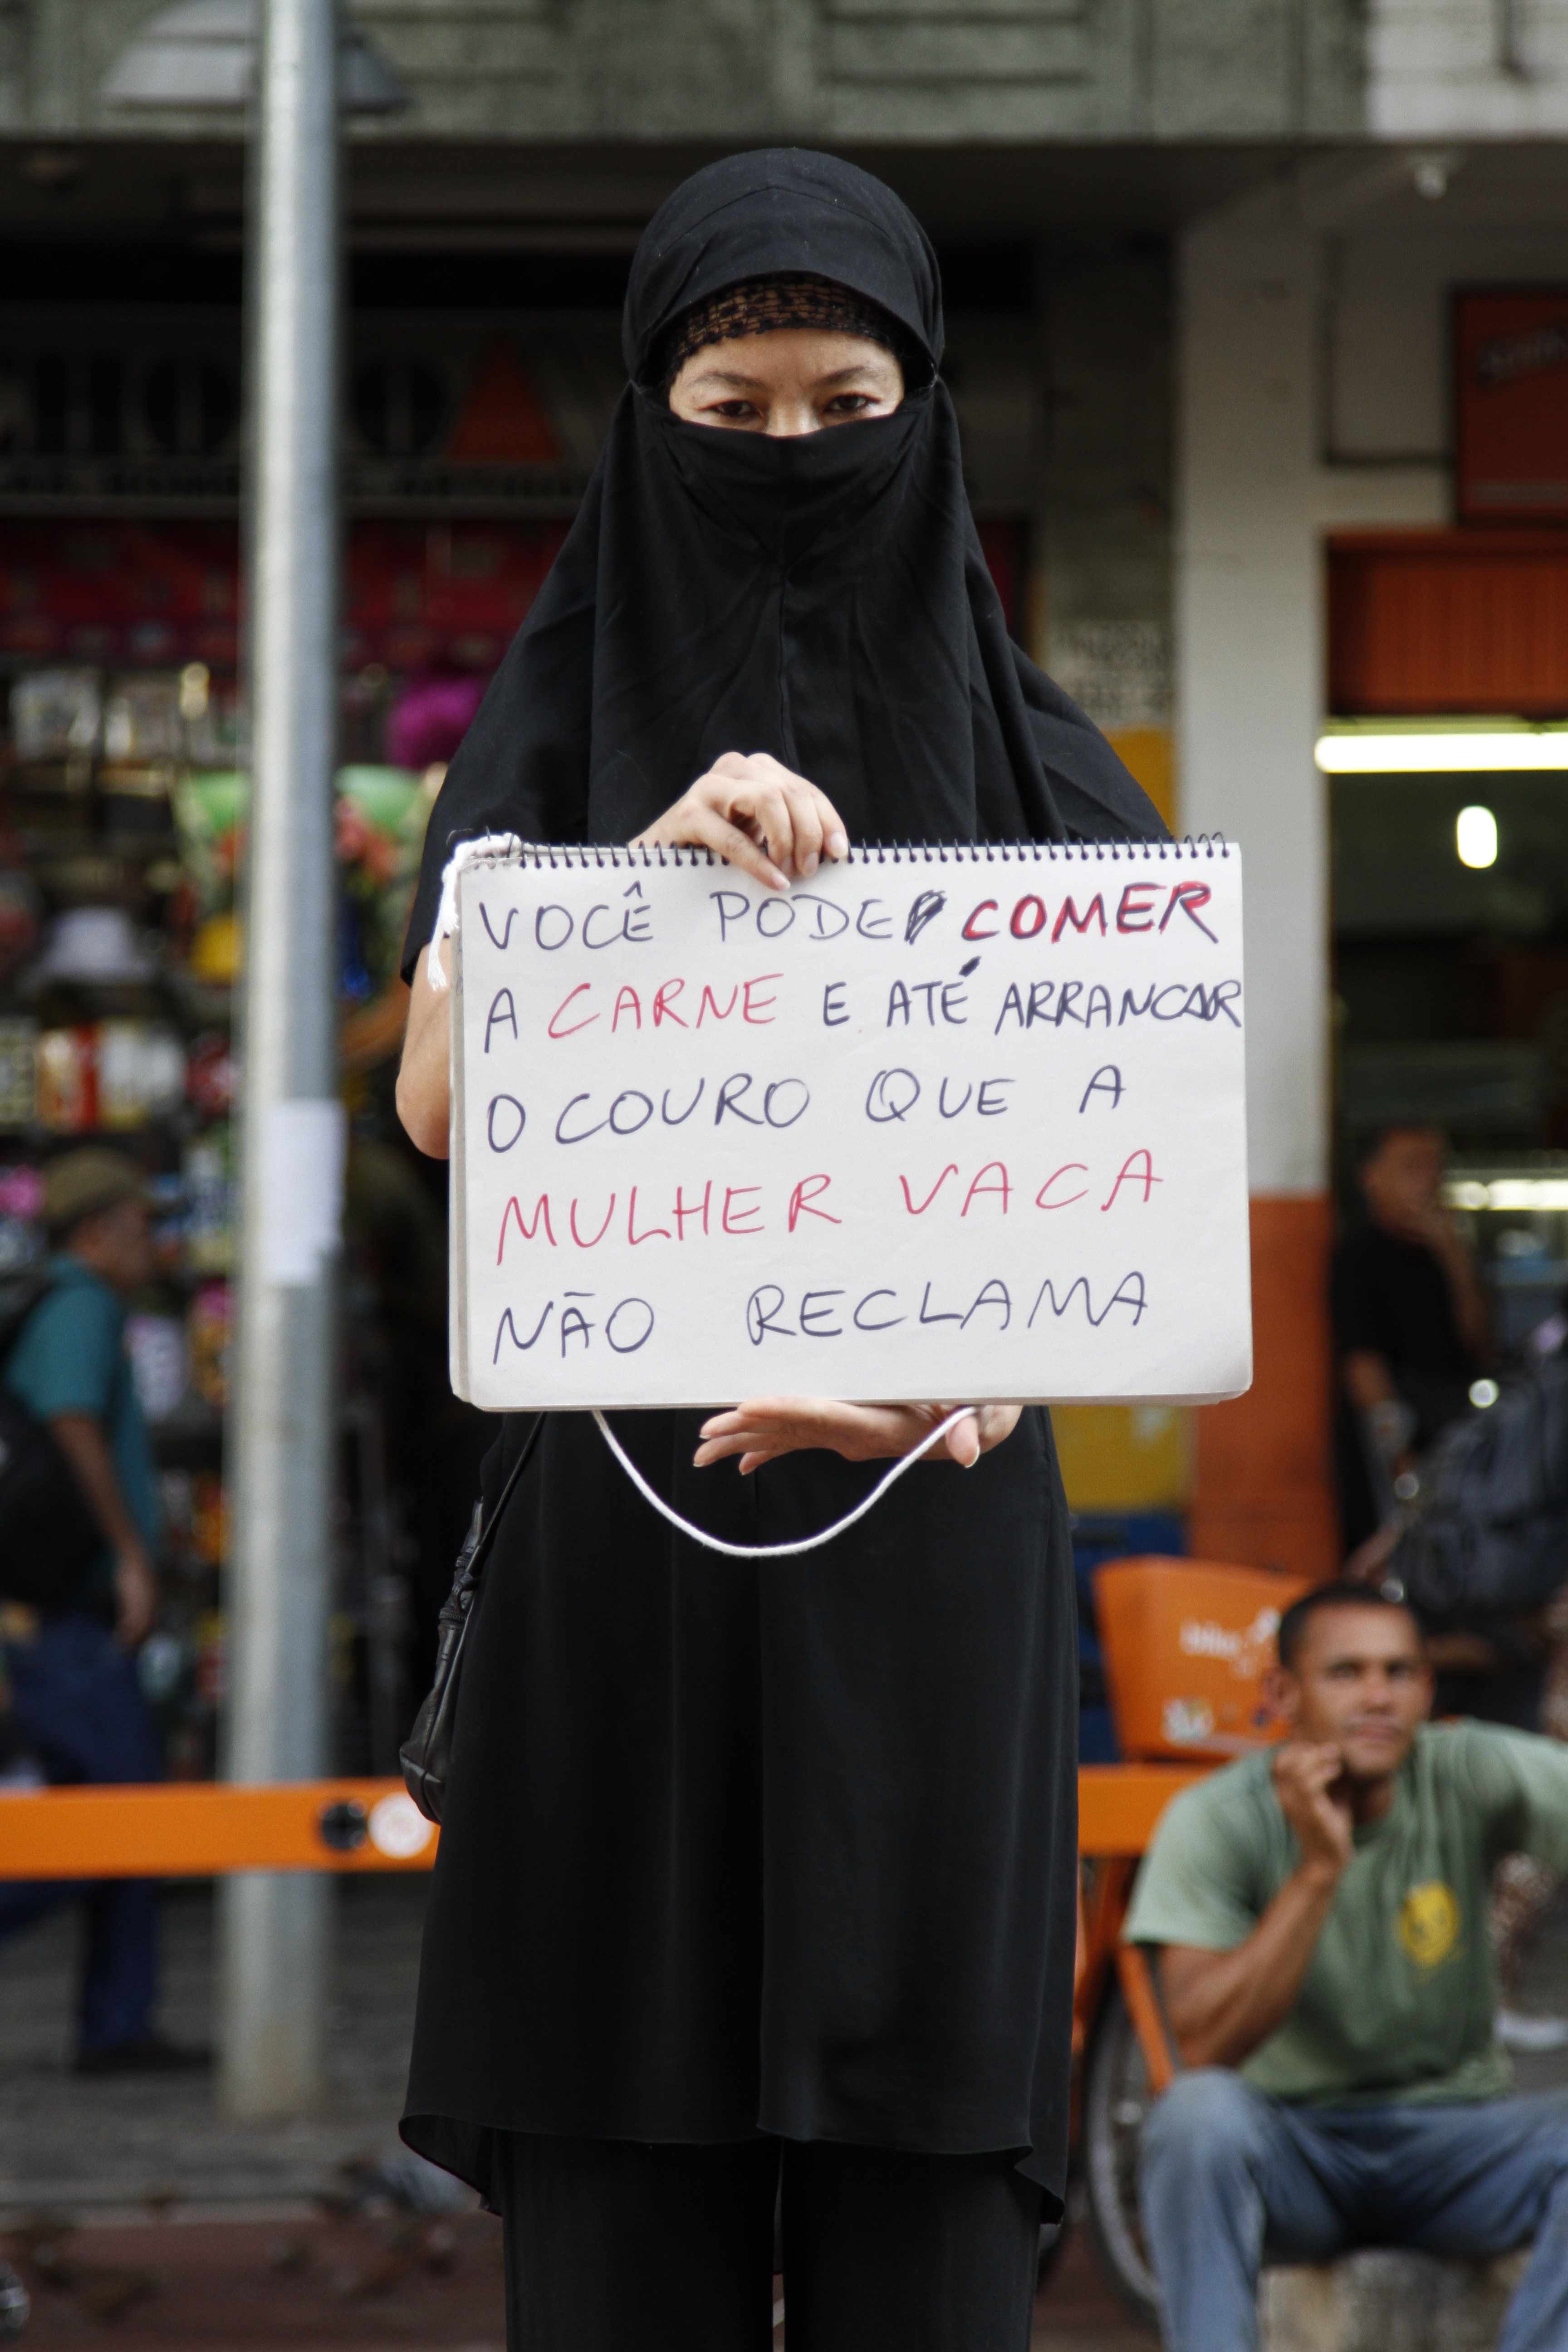 VOCÊ PODE COMER
A CARNE E ATÉ ARRANCAR
O COURO QUE A
MULHER VACA
NÃO RECLAMA